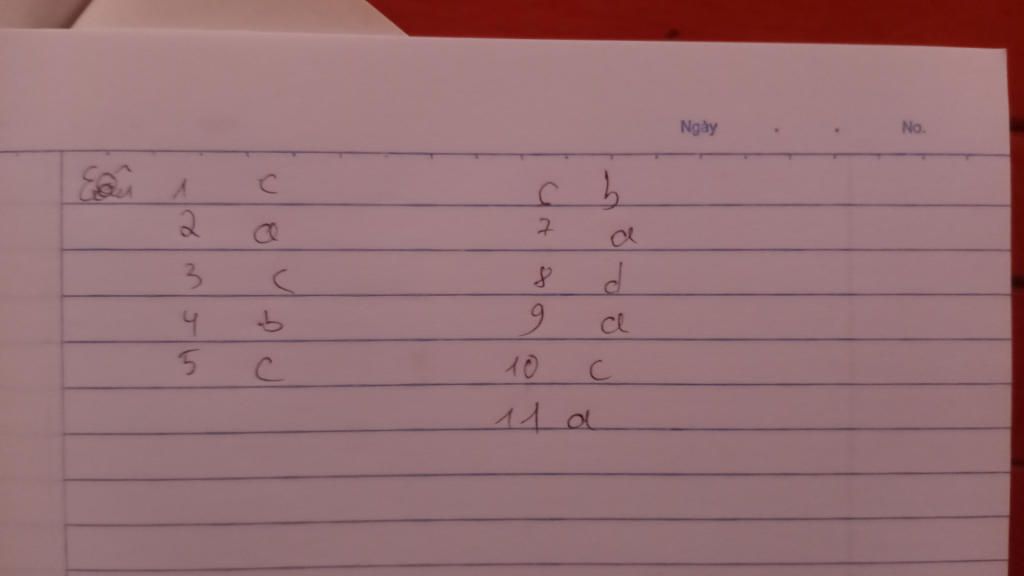 Ngày . . No.
Câu 1 c c b
2 a 7 a
3 c 8 d
4 b 9 a
5 c 10 c
11 a